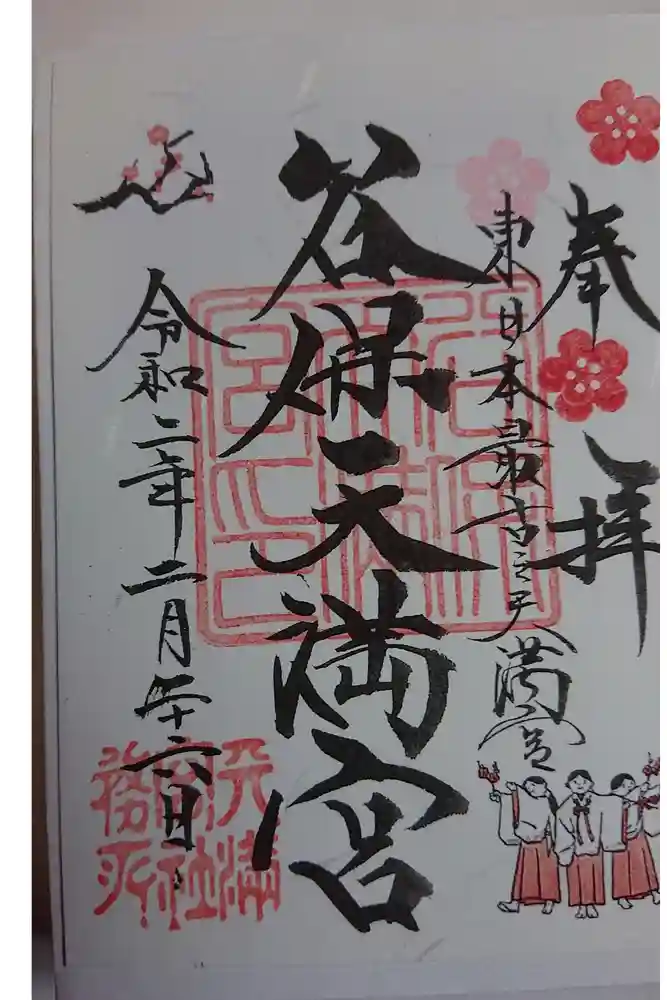 奉拝
東日本最古之天満宮
谷保天満宮
令和二年二月廿六日
天満宮社務所